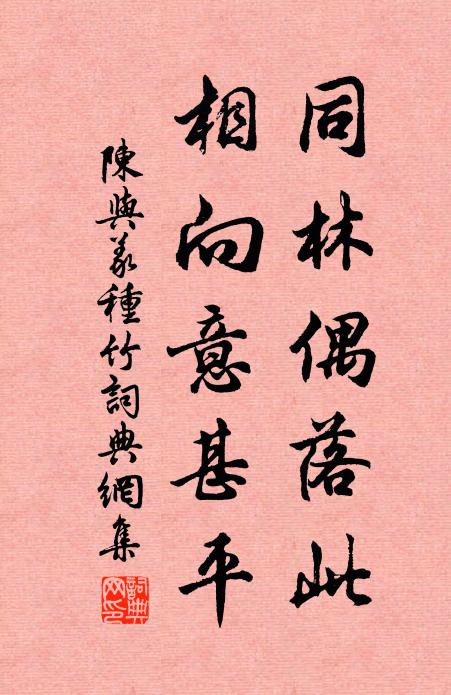 同林偶落此
相向意甚平
陳與義種竹詞典網集
詞典網印